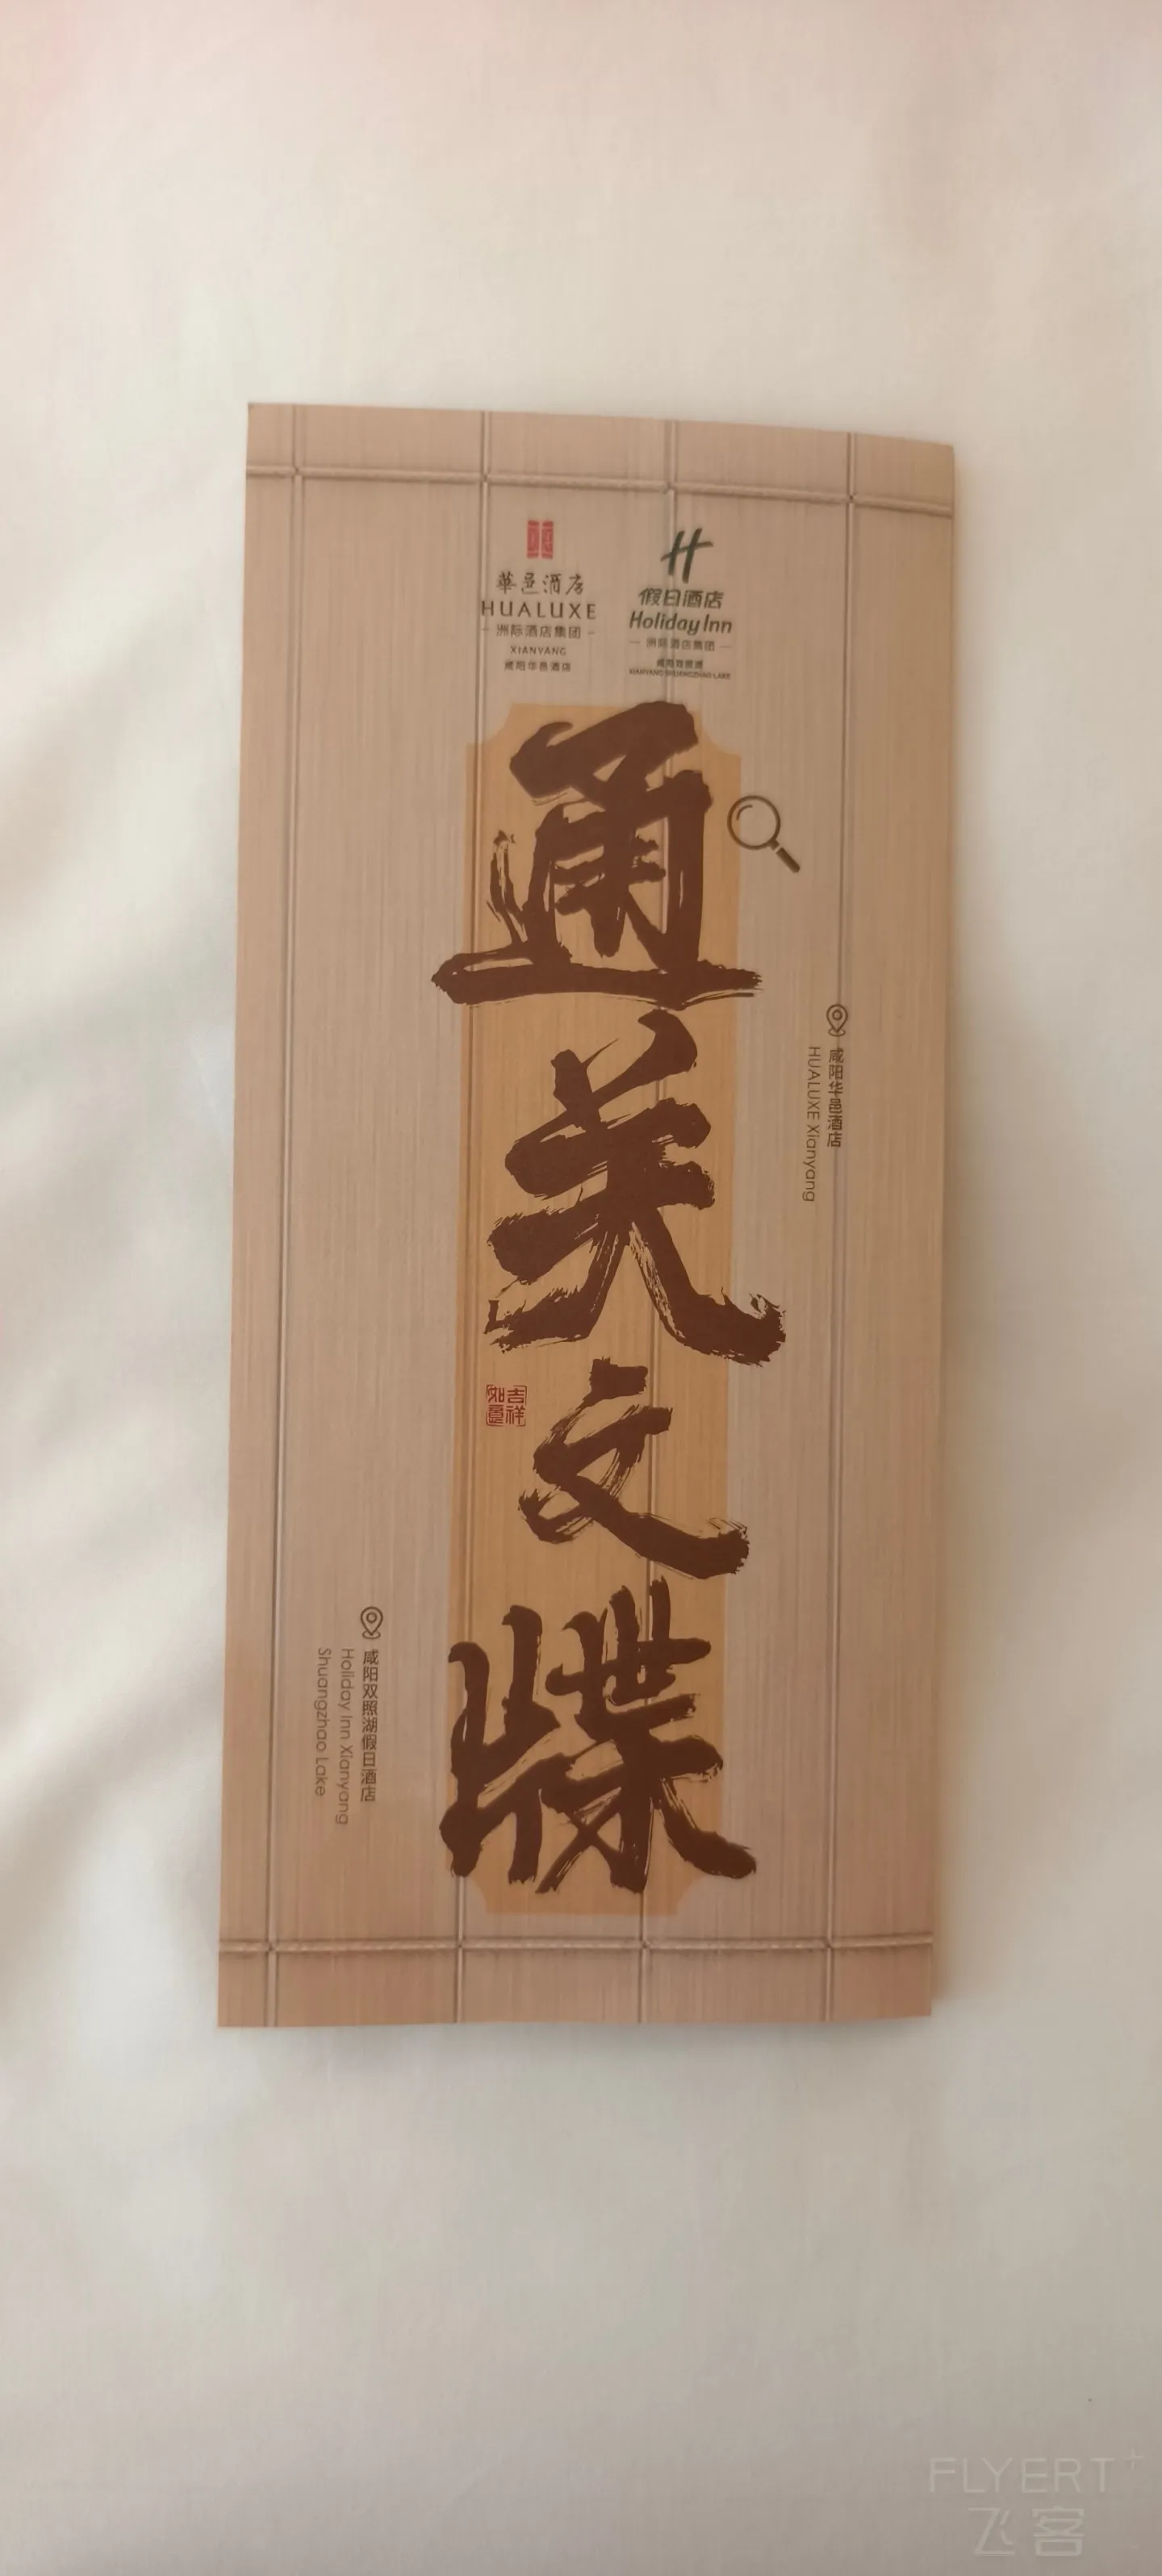 華邑酒店
HUALUXE
洲际酒店集团
XIANYANG
咸阳华邑酒店
假日酒店
Holiday Inn
洲际酒店集团
咸阳双照湖
XIANYANG SHUANGZHAO LAKE
通关文牒
咸阳华邑酒店
HUALUXE Xianyang
吉祥
如意
咸阳双照湖假日酒店
Holiday Inn Xianyang
Shuangzhao Lake
FLYERT+
飞客